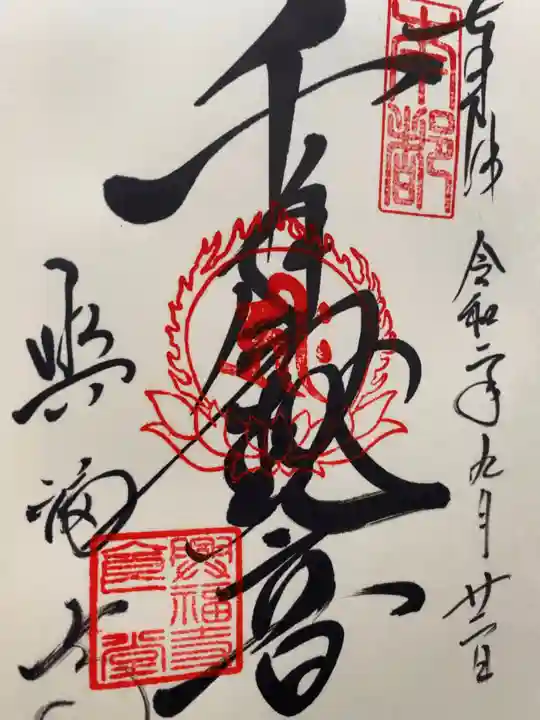 奉拝
南都
令和二年九月廿二日
千手観音
興福寺
興福寺
食堂